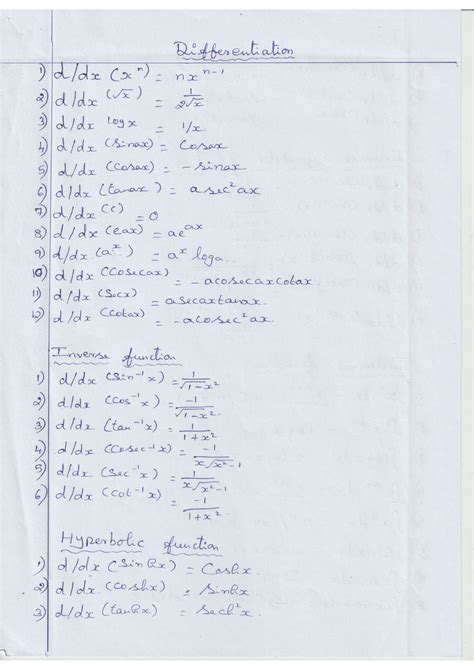 Differentiation
1) d/dx (xⁿ) = nxⁿ⁻¹
2) d/dx (√x) = 1/2√x
3) d/dx logx = 1/x
4) d/dx (sinax) = Cosax
5) d/dx (Cosax) = -sinax
6) d/dx (tanax) = a sec²ax
7) d/dx (c) = 0
8) d/dx (eax) = ae^ax
9) d/dx (aˣ) = aˣ loga.
10) d/dx (Cosecax) = -acosecaxcotax.
11) d/dx (Secx) = asecaxtanax.
12) d/dx (Cotax) = -acosec²ax.
Inverse function
1) d/dx (Sin⁻¹x) = 1/√1-x²
2) d/dx (Cos⁻¹x) = -1/√1-x²
3) d/dx (tan⁻¹x) = 1/1+x²
4) d/dx (Cosec⁻¹x) = -1/x√x²-1
5) d/dx (Sec⁻¹x) = 1/x√x²-1
6) d/dx (Cot⁻¹x) = -1/1+x²
Hyperbolic function
1) d/dx (Sinhx) = Coshx.
2) d/dx (Coshx) = Sinhx
3) d/dx (tanhx) = Sech²x.